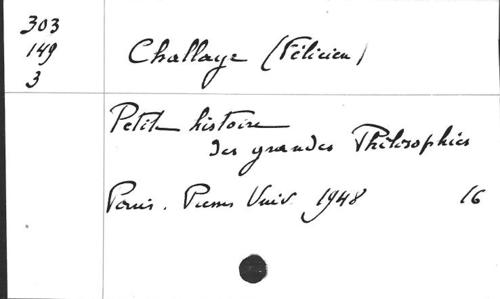 303
149
3
Challaye (Félicien)
Petite histoire
des grandes Philosophies
Paris. Presses Univ. 1948 16